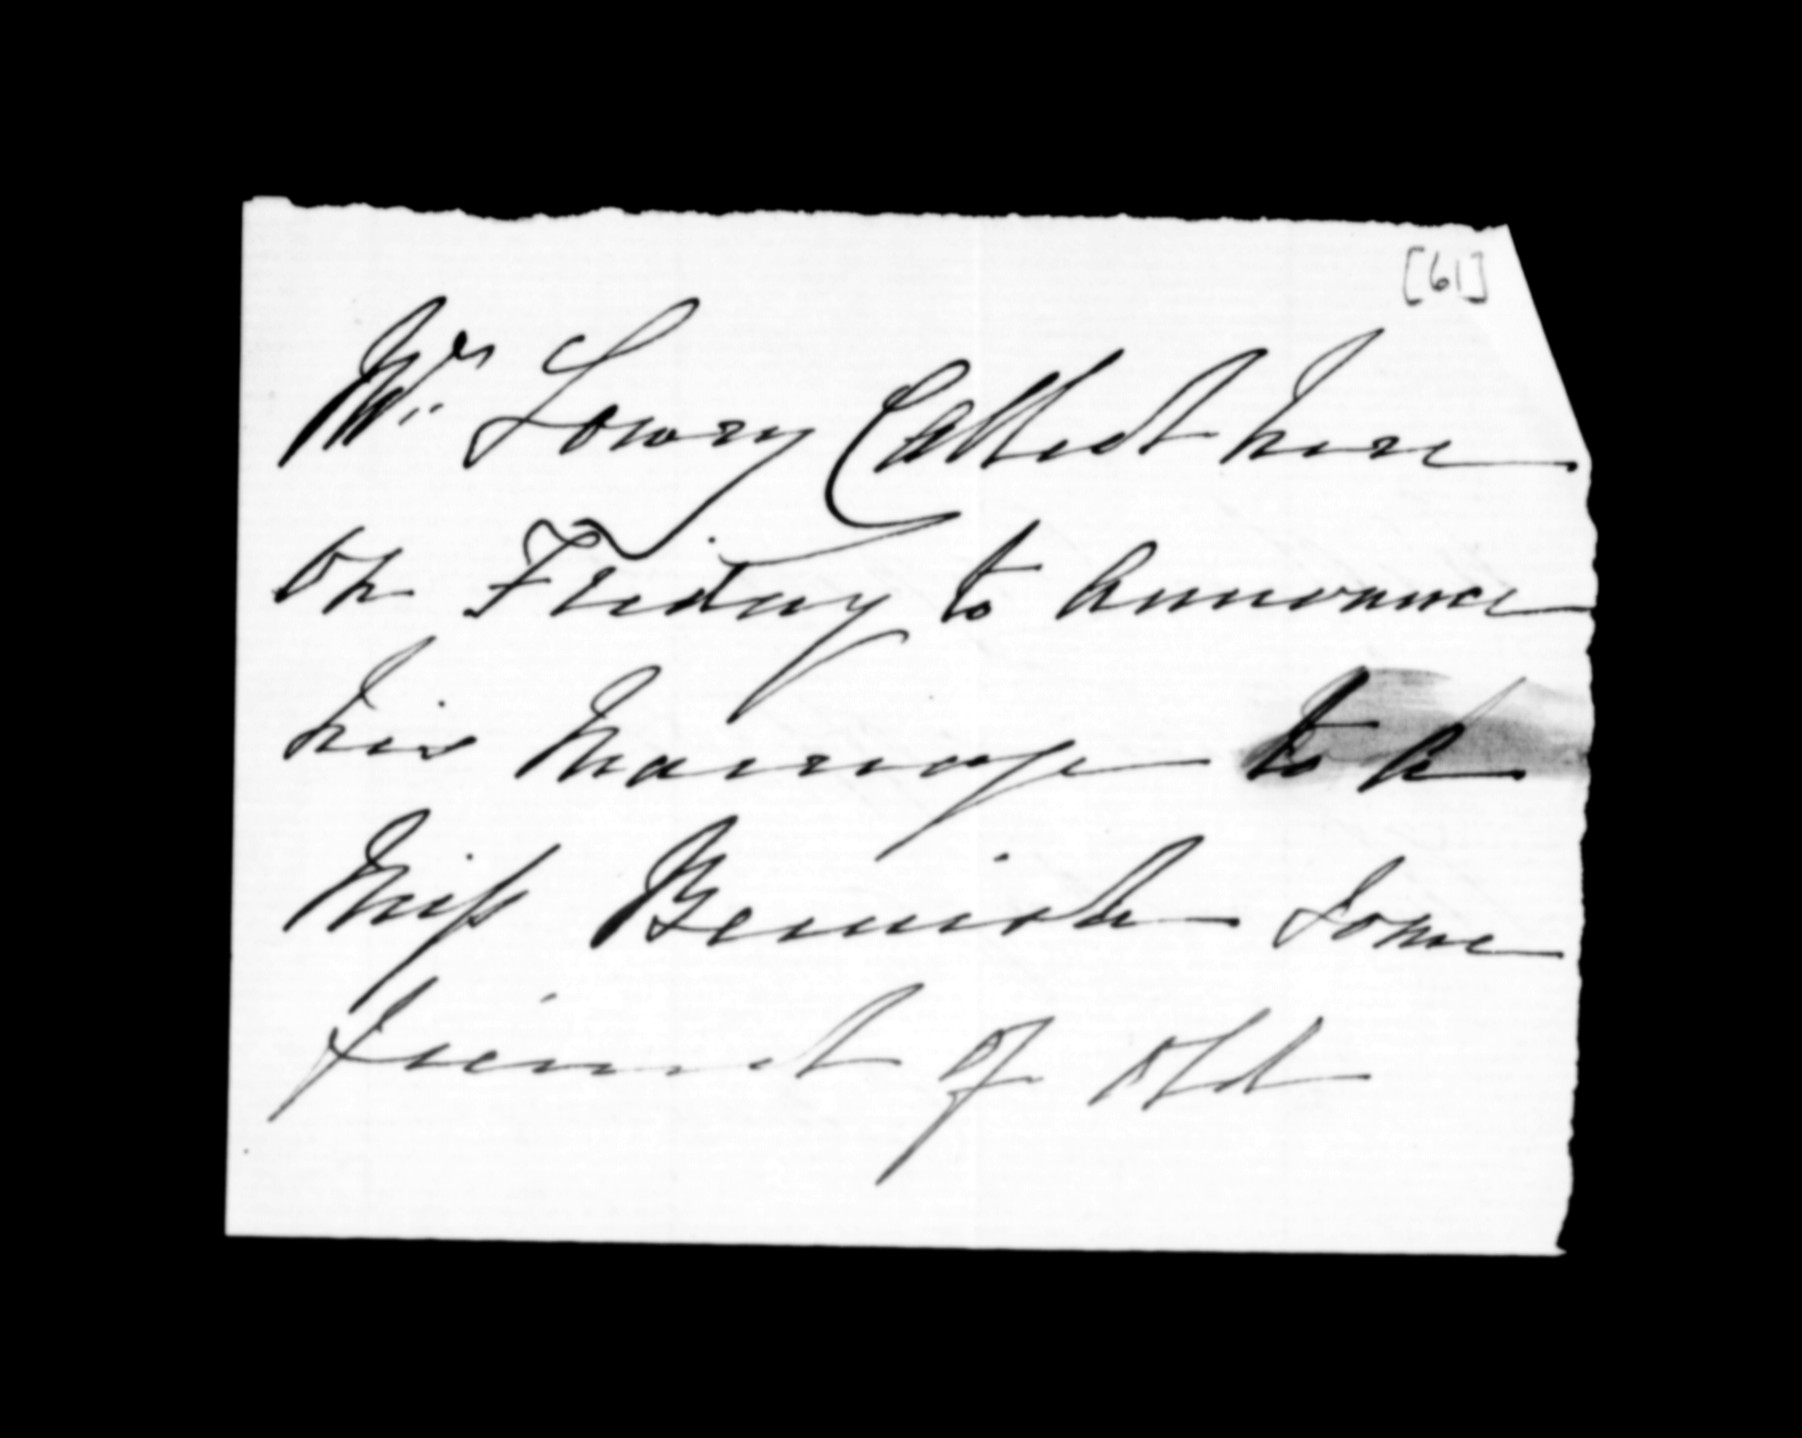 [61]
Mr Lowry Called here
on Friday to announce
his Marriage to a
Miss Some
friend of old